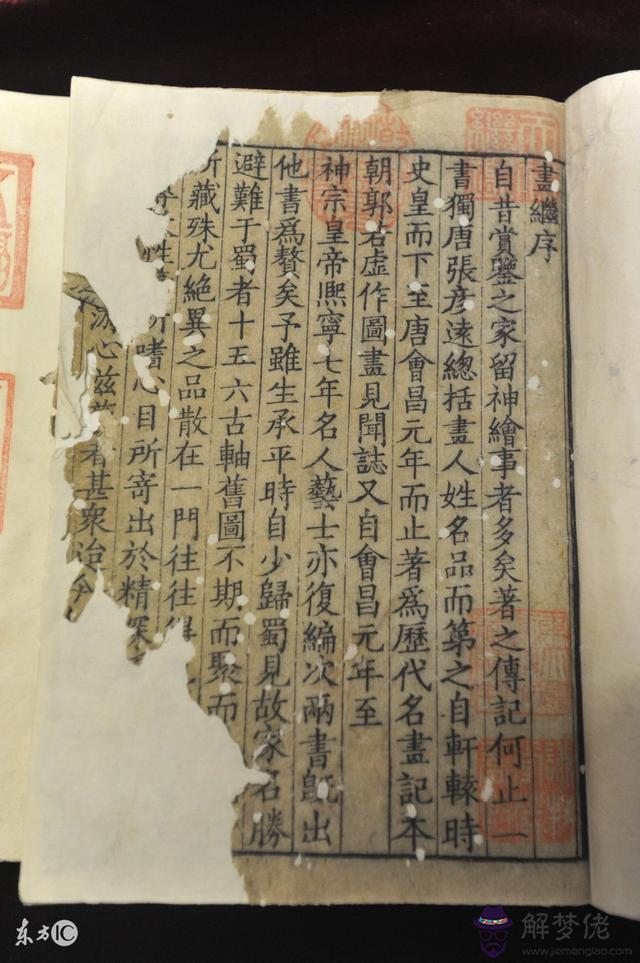 畫繼序
自昔賞鑒之家留神繪事者多矣著之傳記何止一
書獨唐張彥遠總括畫人姓名品而第之自軒轅時
史皇而下至唐會昌元年而止著爲歷代名畫記本
朝郭若虛作圖畫見聞誌又自會昌元年至
神宗皇帝熈寧七年名人藝士亦復編次兩書旣出
他書爲贅矣予雖生承平時自少歸蜀見故家名勝
避難于蜀者十五六古軸舊圖不期而聚而
所藏殊尤絶異之品散在一門往往得
性所嗜心目所寄出於精深
心兹者甚衆迨今
东方IC
解梦佬
www.jiemenglao.com